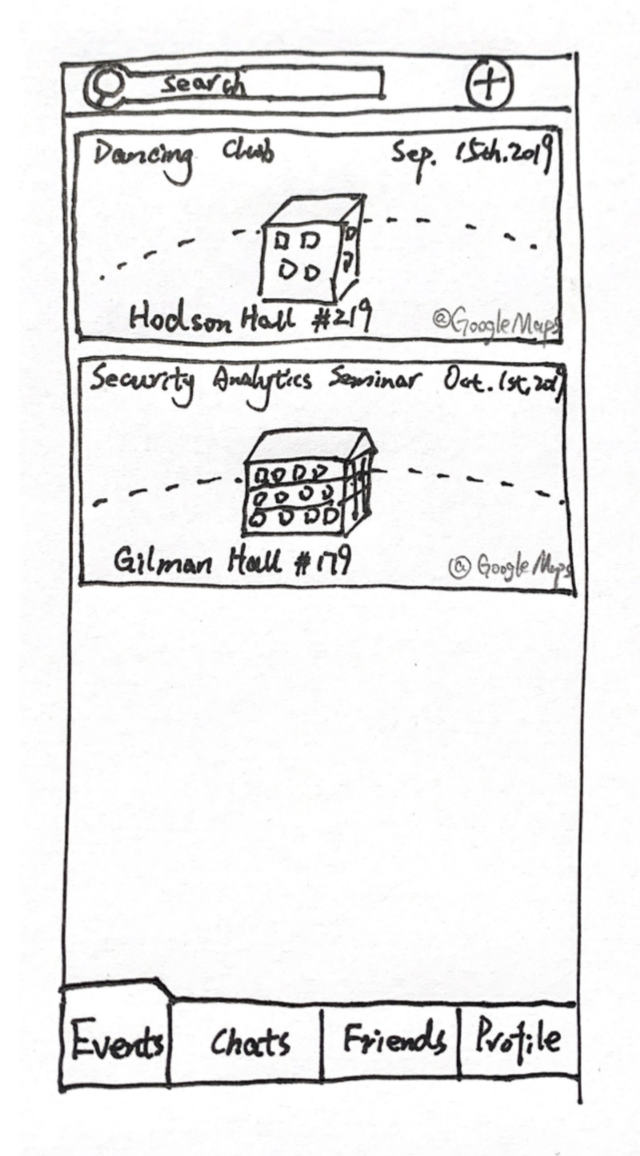 search
Dancing Club Sep. 15th.2019
Hodson Hall #219
@GoogleMaps
Security Analytics Seminar Oct. 1st,2019
Gilman Hall #179
@ Google Maps
Events Chats Friends Profile